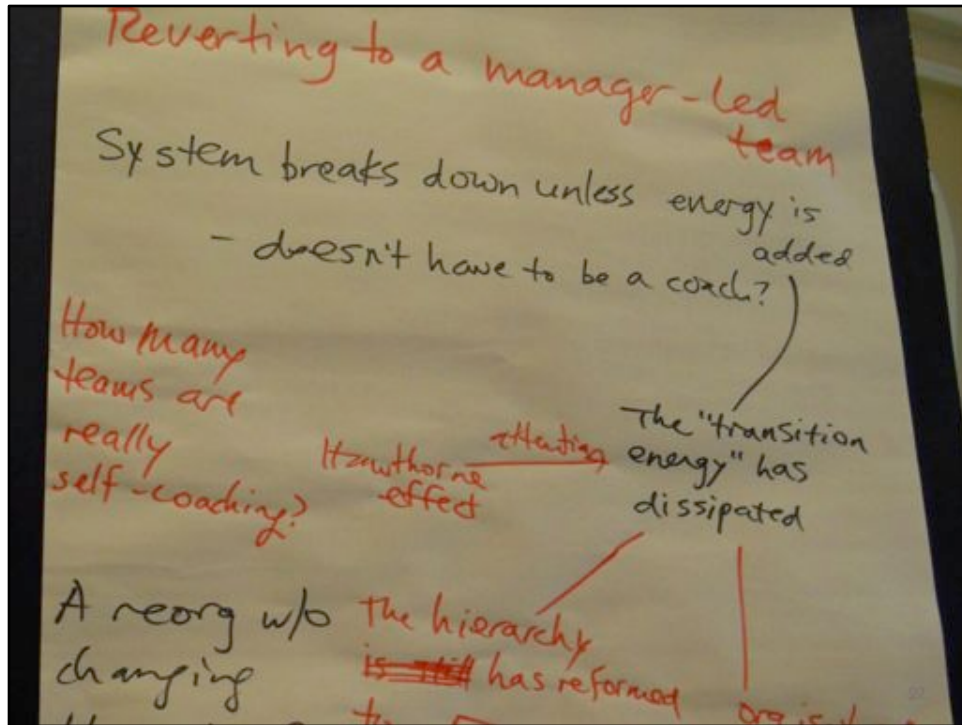 Reverting to a manager-led
team
System breaks down unless energy is
added
- doesn't have to be a coach?
How many
teams are
really
self-coaching?
Hawthorne
effect
attention
The "transition
energy" has
dissipated
A reorg w/o
changing
the hierarchy
has reformed